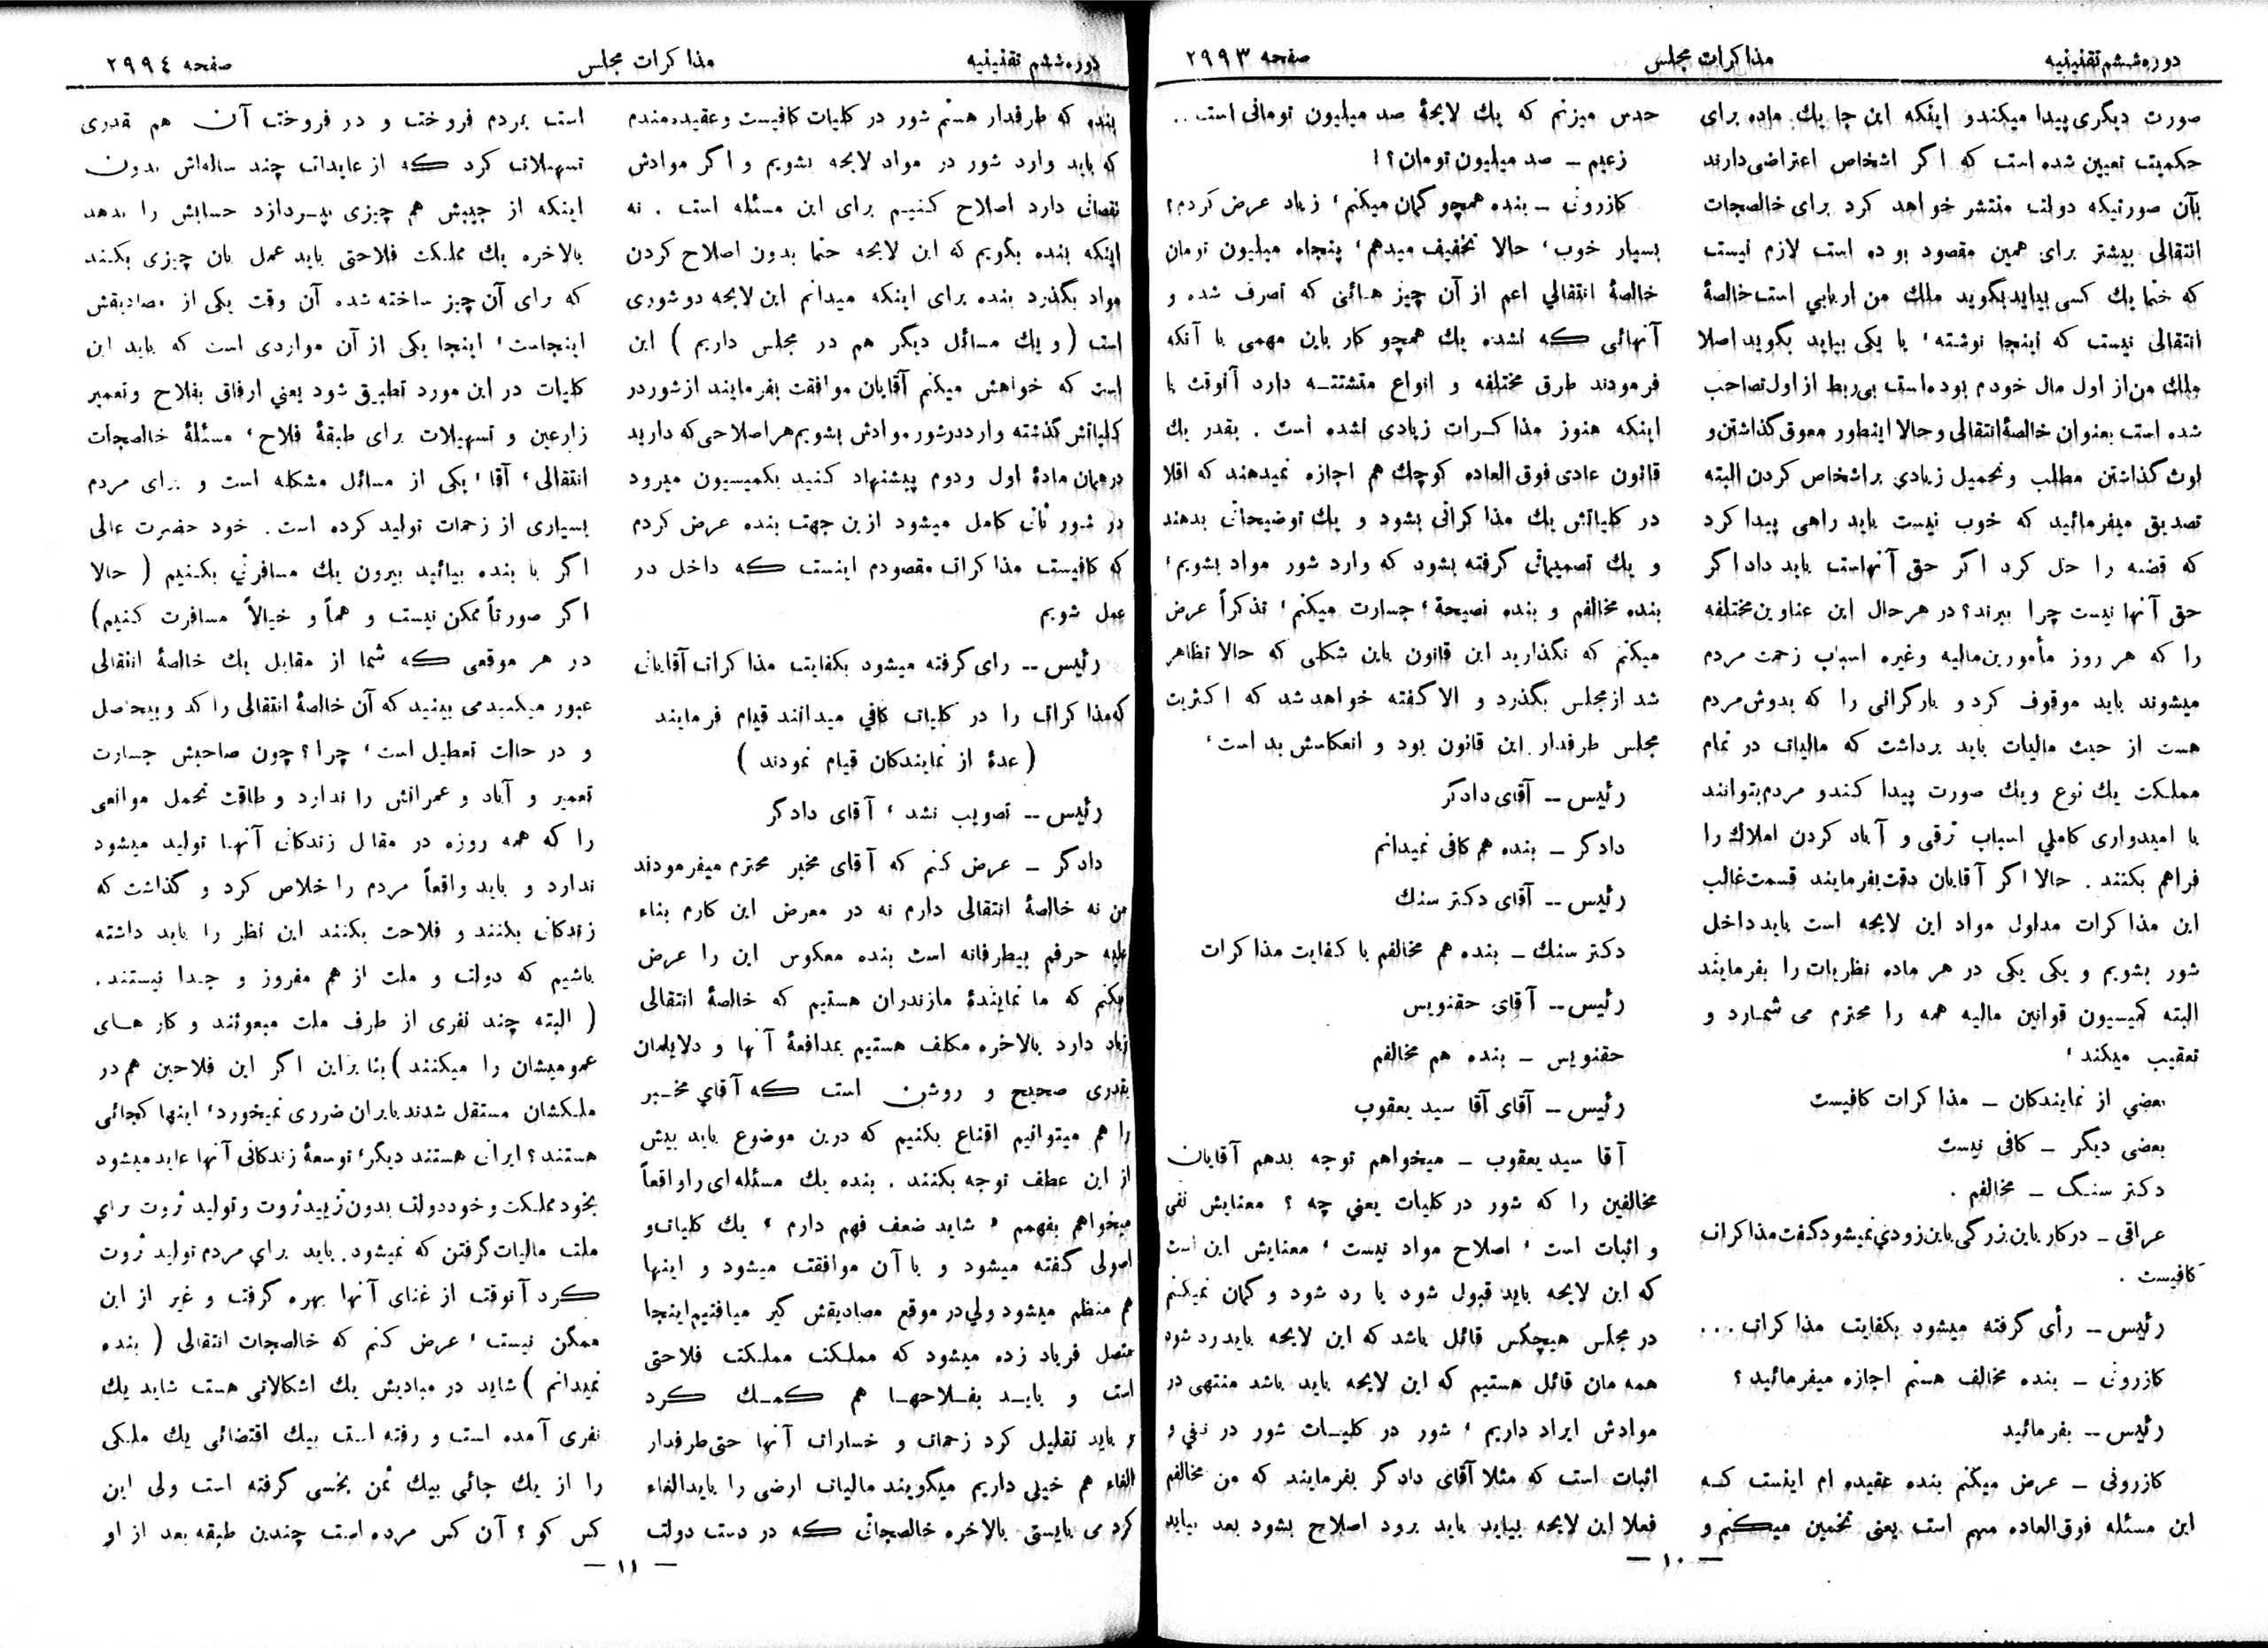 دوره ششم تقنینیه مذاکرات مجلس صفحه ۲۹۹۳
صورت دیگری پیدا میکند و اینکه این جا یك ماده برای
حکمیت تعیین شده است که اگر اشخاص اعتراضی دارند
بآن صورتیکه دولت منتشر خواهد کرد برای خالصجات
انتقالی بیشتر برای همین مقصود بوده است لازم نیست
که حتما یك کسی بیاید بگوید ملك من اربابی است خالصهٔ
انتقالی نیست که اینجا نوشته، یا یکی بیاید بگوید اصلا
ملك من از اول مال خودم بوده است بی ربط از اول تصاحب
شده است بعنوان خالصهٔ انتقالی و حالا اینطور معوق گذاشتن و
لوث گذاشتن مطلب و تحمیل زیادی بر اشخاص کردن البته
تصدیق میفرمائید که خوب نیست باید راهی پیدا کرد
که قضیه را حل کرد اگر حق آنهاست باید داد اگر
حق آنها نیست چرا ببرند؟ در هر حال این عناوین مختلفه
را که هر روز مأمورین مالیه وغیره اسباب زحمت مردم
میشوند باید موقوف کرد و بار گرانی را که بدوش مردم
هست از حیث مالیات باید برداشت که مالیات در تمام
مملکت یك نوع ویك صورت پیدا کند و مردم بتوانند
با امیدواری کاملی اسباب ترقی و آباد کردن املاك را
فراهم بکنند . حالا اگر آقایان دقت بفرمایند قسمت غالب
این مذاکرات مداول مواد این لایحه است باید داخل
شور بشویم و یکی یکی در هر ماده نظریات را بفرمایند
البته کمیسیون قوانین مالیه همه را محترم می شمارد و
تعقیب میکند ،
بعضی از نمایندگان ـ مذاکرات کافیست
بعضی دیگر ـ کافی نیست
دکتر سنگ ـ مخالفم .
عراقی ـ در کار باین بزرگی باین زودی نمیشود گفت مذاکرات
کافیست .
رئیس ـ رأی گرفته میشود بکفایت مذاکرات ...
کازرونی ـ بنده مخالف هستم اجازه میفرمائید ؟
رئیس ـ بفرمائید
کازرونی ـ عرض میکنم بنده عقیده ام اینست که
این مسئله فوق العاده مهم است یعنی تخمین میکنم و
حدس میزنم که یك لایحهٔ صد میلیون تومانی است ..
زعیم ـ صد میلیون تومان؟!
کازرونی ـ بنده همچو گمان میکنم، زیاد عرض کردم؟
بسیار خوب، حالا تخفیف میدهم، پنجاه میلیون تومان
خالصهٔ انتقالی اعم از آن چیز هائی که تصرف شده و
آنهائی که نشده یك همچو کار باین مهمی با آنکه
فرمودند طرق مختلفه و انواع متشتته دارد آنوقت با
اینکه هنوز مذاکرات زیادی نشده است . بقدر یك
قانون عادی فوق العاده کوچك هم اجازه نمیدهند که اقلا
در کلیاتش یك مذاکراتی بشود و یك توضیحاتی بدهند
و یك تصمیماتی گرفته بشود که وارد شور مواد بشویم،
بنده مخالفم و بنده نصیحة، جسارت میکنم، تذکراً عرض
میکنم که نگذارید این قانون باین شکلی که حالا تظاهر
شد از مجلس بگذرد و الا گفته خواهد شد که اکثریت
مجلس طرفدار این قانون بود و انعکاسش بد است،
رئیس ـ آقای دادگر
دادگر ـ بنده هم کافی نمیدانم
رئیس ـ آقای دکتر سنك
دکتر سنك ـ بنده هم مخالفم با کفایت مذاکرات
رئیس ـ آقای حقنویس
حقنویس ـ بنده هم مخالفم
رئیس ـ آقای آقا سید یعقوب
آقا سید یعقوب ـ میخواهم توجه بدهم آقایان
مخالفین را که شور در کلیات یعنی چه ؟ معنایش نفی
و اثبات است ، اصلاح مواد نیست ، معنایش این است
که این لایحه باید قبول شود یا رد شود و گمان نمیکنم
در مجلس هیچکس قائل باشد که این لایحه باید رد شود
همه مان قائل هستیم که این لایحه باید باشد منتهی در
موادش ایراد داریم ، شور در کلیات شور در نفی و
اثبات است که مثلا آقای دادگر بفرمایند که من مخالفم
فعلا این لایحه بیاید باید برود اصلاح بشود بعد بیاید
— ۱۰ —
دوره ششم تقنینیه مذاکرات مجلس صفحه ۲۹۹٤
بنده که طرفدار هستم شور در کلیات کافیست و عقیده مندم
که باید وارد شور در مواد لایحه بشویم و اگر موادش
نقصانی دارد اصلاح کنیم برای این مسئله است . نه
اینکه بنده بگویم که این لایحه حتما بدون اصلاح کردن
مواد بگذرد بنده برای اینکه میدانم این لایحه دو شوری
است ( و یك مسائل دیگر هم در مجلس داریم ) این
است که خواهش میکنم آقایان موافقت بفرمایند از شور در
کلیاتش گذشته وارد در شور موادش بشویم هر اصلاحی که دارید
در همان مادهٔ اول ودوم پیشنهاد کنید بکمیسیون میرود
در شور ثانی کامل میشود ازین جهت بنده عرض کردم
که کافیست مذاکرات مقصودم اینست که داخل در
عمل شویم
رئیس ـ رای گرفته میشود بکفایت مذاکرات آقایانی
که مذاکرات را در کلیات کافی میدانند قیام فرمایند
( عدهٔ از نمایندگان قیام نمودند )
رئیس ـ تصویب نشد ، آقای دادگر
دادگر ـ عرض کنم که آقای مخبر محترم میفرمودند
من نه خالصهٔ انتقالی دارم نه در معرض این کارم بناء
علیه حرفم بیطرفانه است بنده معکوس این را عرض
میکنم که ما نمایندهٔ مازندران هستیم که خالصهٔ انتقالی
زیاد دارد بالاخره مکلف هستیم بمدافعهٔ آنها و دلایلمان
بقدری صحیح و روشن است که آقای مخبر
را هم میتوانیم اقناع بکنیم که درین موضوع باید بیش
از این عطف توجه بکنند . بنده یك مسئله ای را واقعاً
میخواهم بفهمم ، شاید ضعف فهم دارم ، یك کلیات و
اصولی گفته میشود و با آن موافقت میشود و اینها
هم منظم میشود ولی در موقع مصادیقش گیر میافتیم اینجا
متصل فریاد زده میشود که مملکت مملکت فلاحتی
است و باید بفلاحها هم کمك کرد
و باید تقلیل کرد زحمات و خسارات آنها حتی طرفدار
الغاء هم خیلی داریم میگویند مالیات ارضی را باید الغاء
کرد می بایستی بالاخره خالصجاتی که در دست دولت
است بمردم فروخت و در فروختن آن هم قدری
تسهیلات کرد که از عایدات چند ساله اش بدون
اینکه از جیبش هم چیزی بپردازد حسابش را بدهد
بالاخره یك مملکت فلاحتی باید عمل بان چیزی بکند
که برای آن چیز ساخته شده آن وقت یکی از مصادیقش
اینجاست ، اینجا یکی از آن مواردی است که باید این
کلیات در این مورد تطبیق شود یعنی ارفاق بفلاح وتعمیر
زارعین و تسهیلات برای طبقهٔ فلاح ، مسئلهٔ خالصجات
انتقالی، آقا، یکی از مسائل مشکله است و برای مردم
بسیاری از زحمات تولید کرده است . خود حضرت عالی
اگر با بنده بیائید بیرون یك مسافرتی بکنیم ( حالا
اگر صورتاً ممکن نیست و هماً و خیالاً مسافرت کنیم)
در هر موقعی که شما از مقابل یك خالصهٔ انتقالی
عبور میکنید می بینید که آن خالصهٔ انتقالی راکد و بیحاصل
و در حالت تعطیل است ، چرا ؟ چون صاحبش جسارت
تعمیر و آباد و عمرانش را ندارد و طاقت تحمل موانعی
را که همه روزه در مقابل زندگانی آنها تولید میشود
ندارد و باید واقعاً مردم را خلاص کرد و گذاشت که
زندگانی بکنند و فلاحت بکنند این نظر را باید داشته
باشیم که دولت و ملت از هم مفروز و جدا نیستند .
( البته چند نفری از طرف ملت مبعوثند و کار های
عمومیشان را میکنند ) بنا براین اگر این فلاحین هم در
ملکشان مستقل شدند بایران ضرری نمیخورد، اینها کجائی
هستند؟ ایران هستند دیگر، توسعهٔ زندگانی آنها عاید میشود
بخود مملکت و خود دولت بدون تزیید ثروت و تولید ثروت برای
ملت مالیات گرفتن که نمیشود. باید برای مردم تولید ثروت
کرد آنوقت از غنای آنها بهره گرفت و غیر از این
ممکن نیست ، عرض کنم که خالصجات انتقالی ( بنده
نمیدانم ) شاید در مبادیش یك اشکالاتی هست شاید یك
نفری آمده است و رفته است بیك اقتضائی یك ملکی
را از یك جائی بیك ثمن بخسی گرفته است ولی این
کس کو ؟ آن کس مرده است چندین طبقه بعد از او
— ۱۱ —